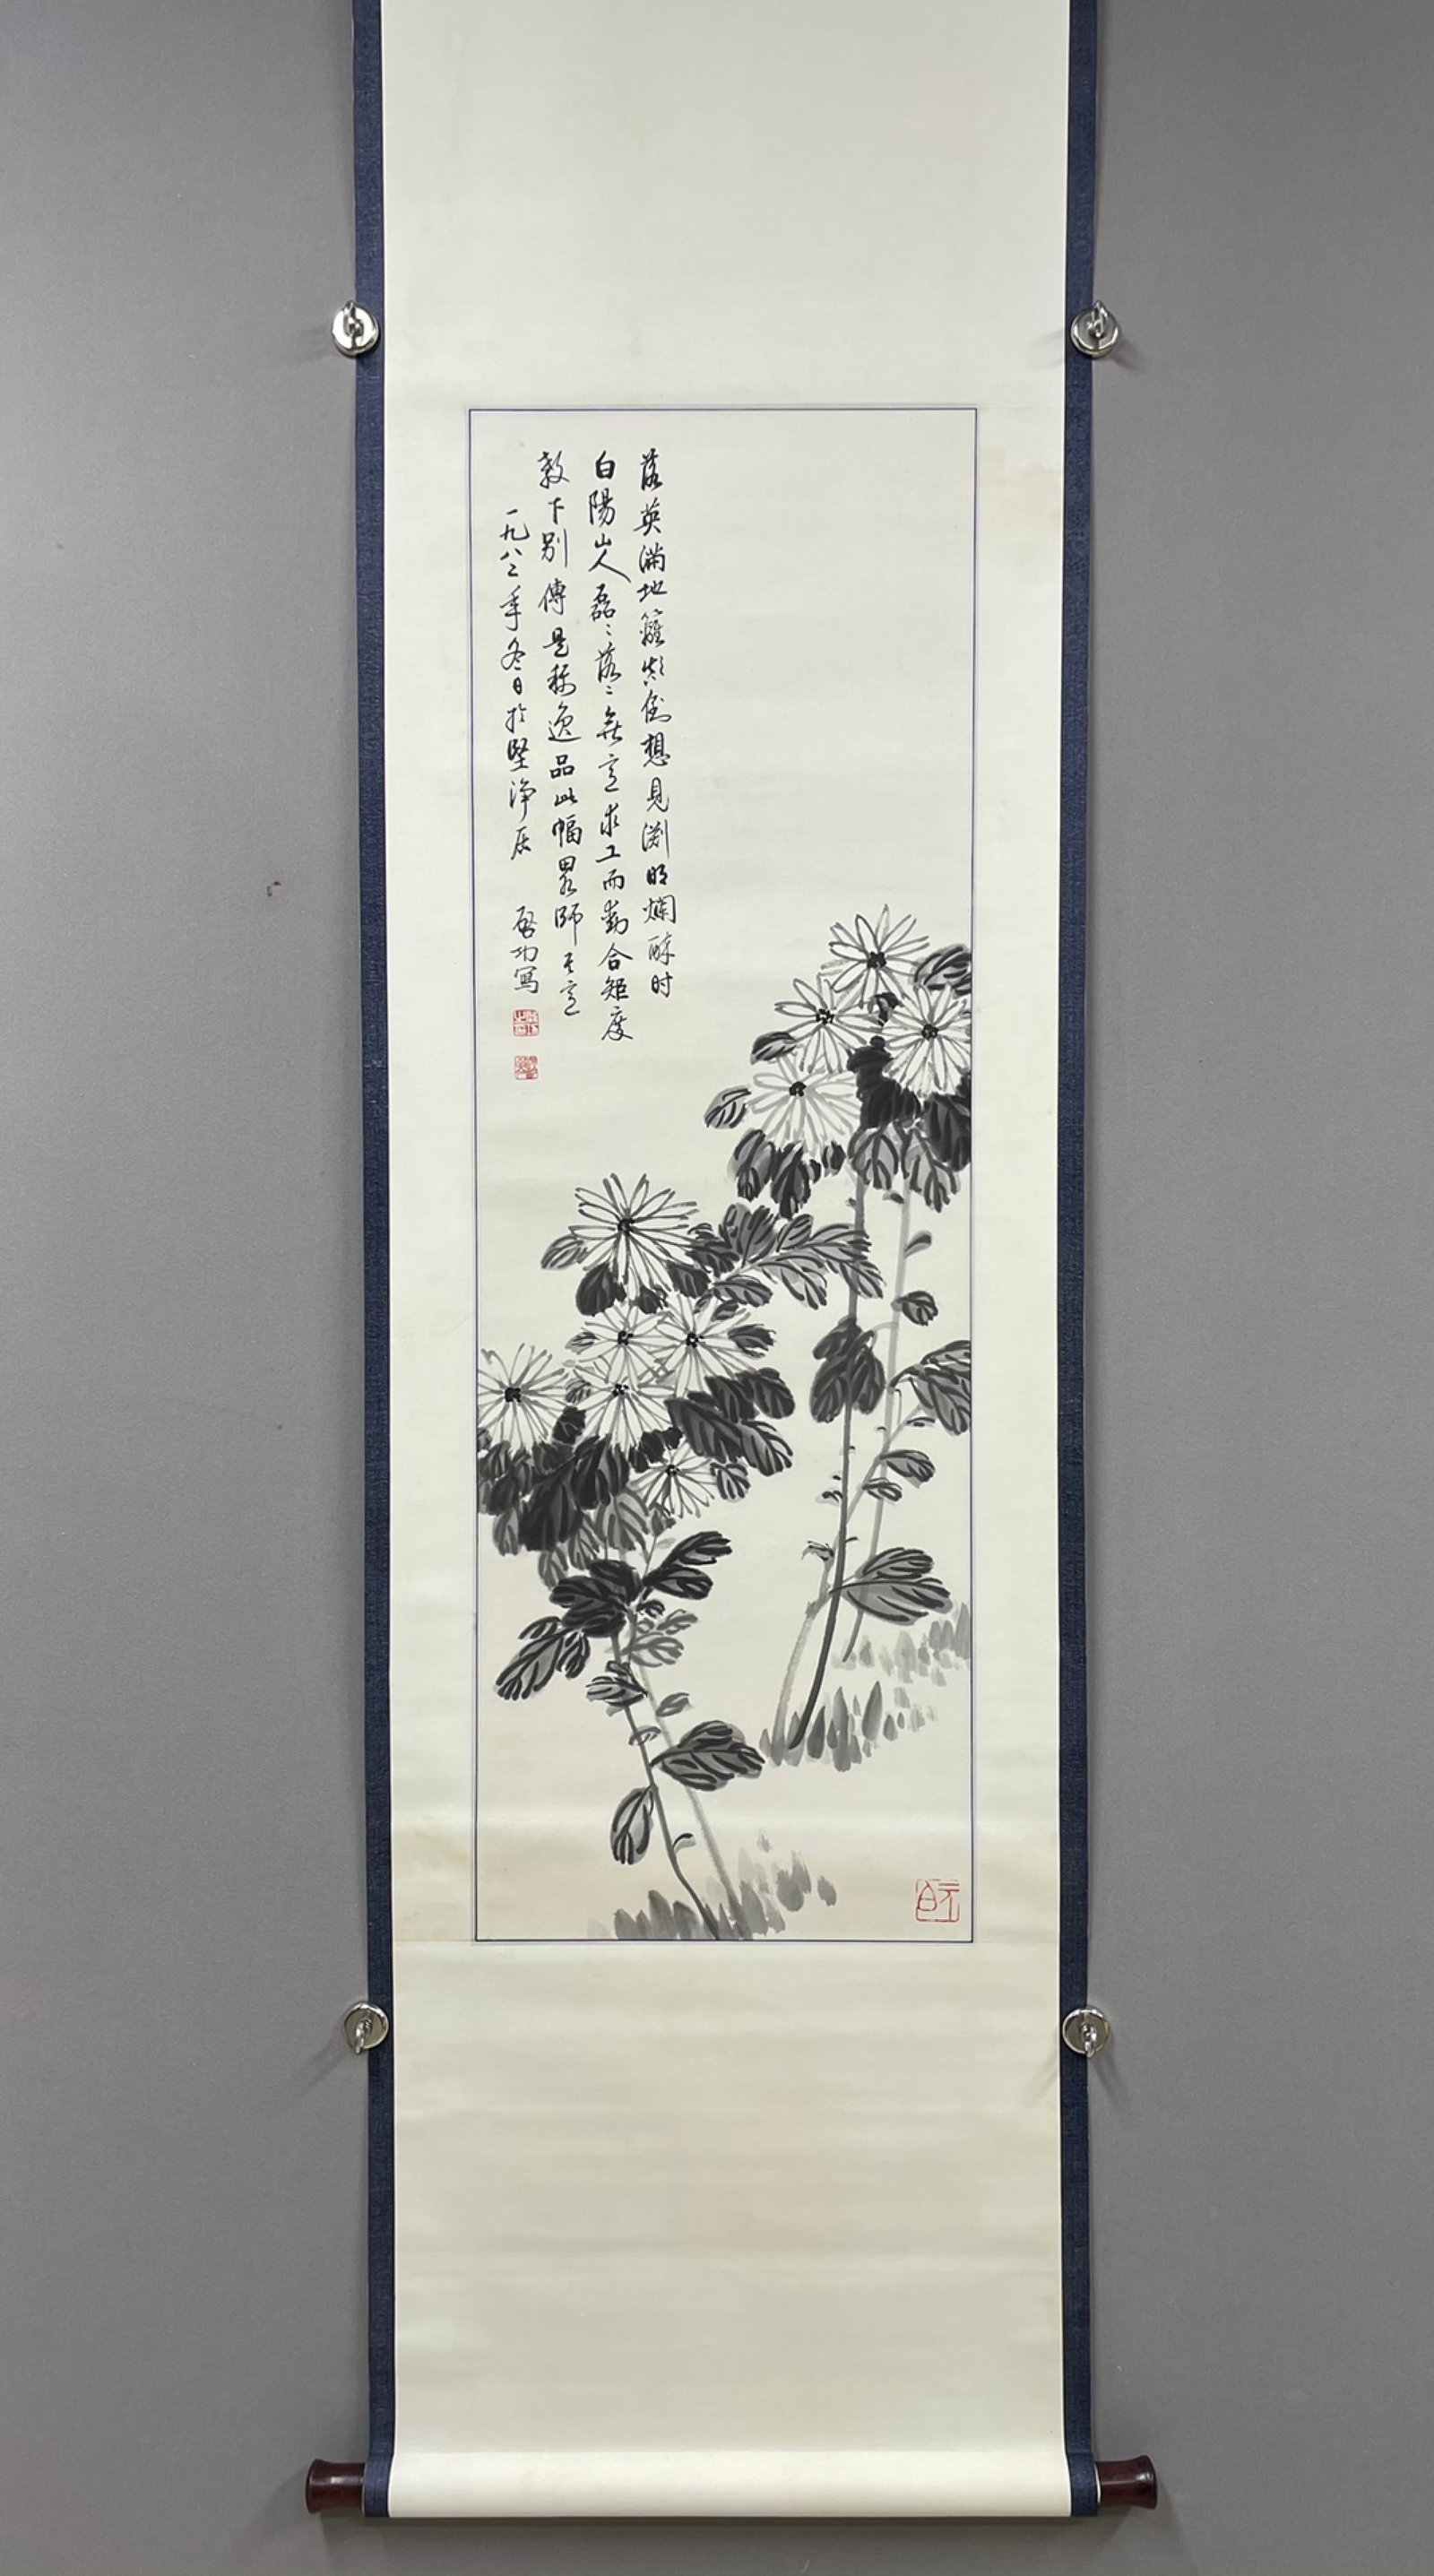 落英满地籬頽倒想見渊明爛醉时
白陽山人磊〻落〻無意求工而動合矩度
教下別傳是称逸品此幅畧師其意
一九八二年冬日於堅净居 啓功寫